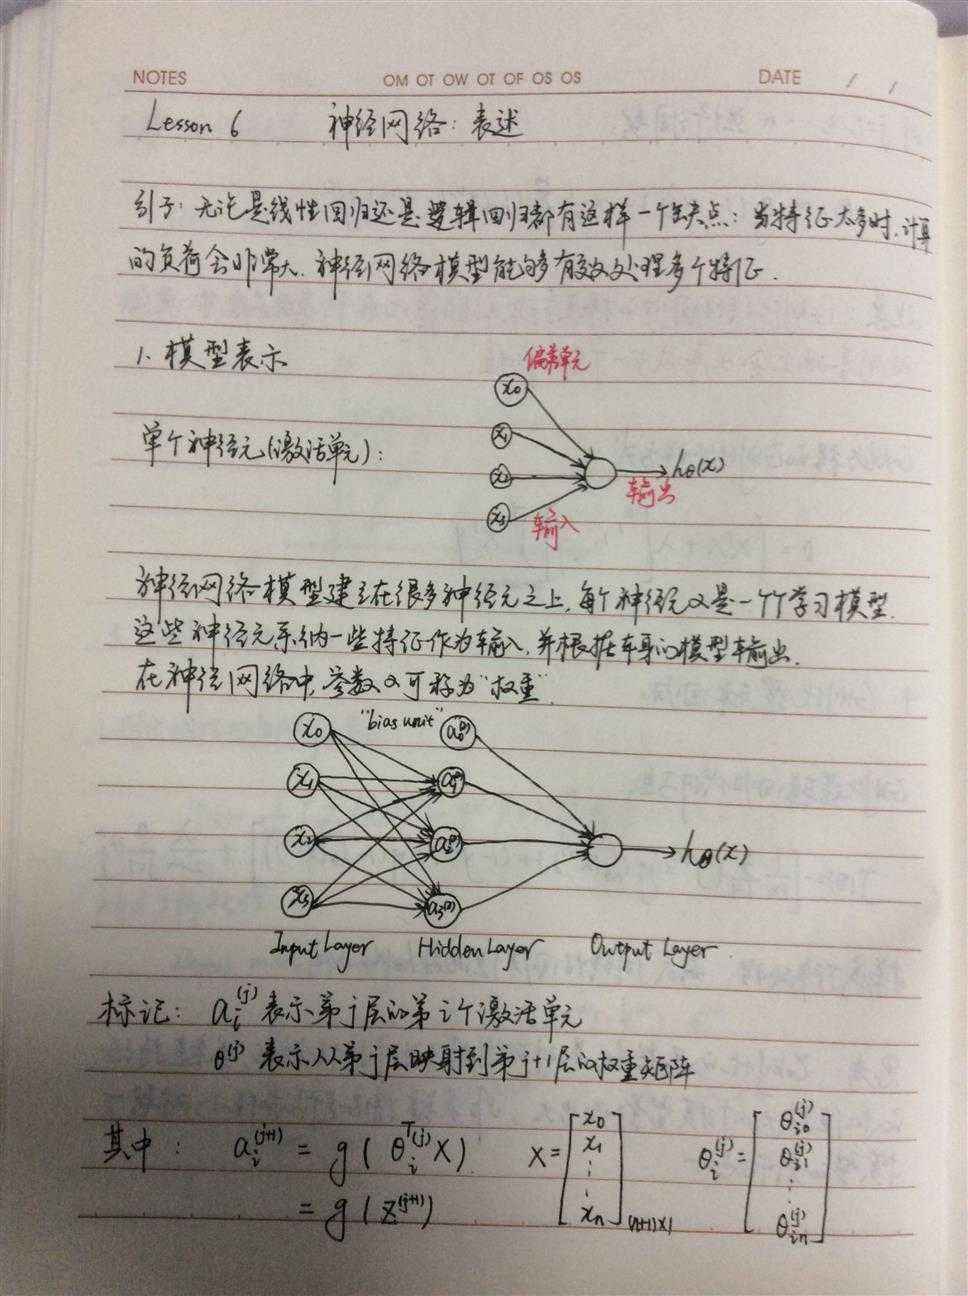 NOTES OM OT OW OT OF OS OS DATE / /
Lesson 6 神经网络：表述
引子：无论是线性回归还是逻辑回归都有这样一个缺点：当特征太多时，计算
的负荷会非常大．神经网络模型能够有效处理多个特征．
1. 模型表示
偏差单元
x₀
单个神经元(激活单元)：
x₁
x₂
hθ(x)
输出
x₃
输入
神经网络模型建立在很多神经元之上，每个神经元又是一个个学习模型．
这些神经元采纳一些特征作为输入，并根据本身的模型输出．
在神经网络中，参数又可称为"权重"
x₀ "bias unit" a₀⁽²⁾
x₁ a₁⁽²⁾
x₂ a₂⁽²⁾ hθ(x)
x₃ a₃⁽²⁾
Input Layer Hidden Layer Output Layer
标记： aᵢ⁽ʲ⁾ 表示第j层的第i个激活单元
θ⁽ʲ⁾ 表示从第j层映射到第j+1层的权重矩阵
其中： aᵢ⁽ʲ⁺¹⁾ = g( θᵢᵀ⁽ʲ⁾ X) X = [x₀ x₁ ⋮ xₙ] (n+1)×1 θᵢ⁽ʲ⁾ = [θᵢ₀⁽ʲ⁾ θᵢ₁⁽ʲ⁾ ⋮ θᵢₙ⁽ʲ⁾]
= g( z⁽ʲ⁺¹⁾)